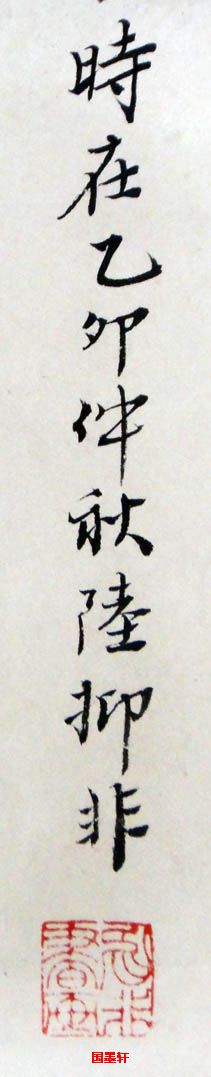 時在乙卯仲秋陸抑非
国墨轩